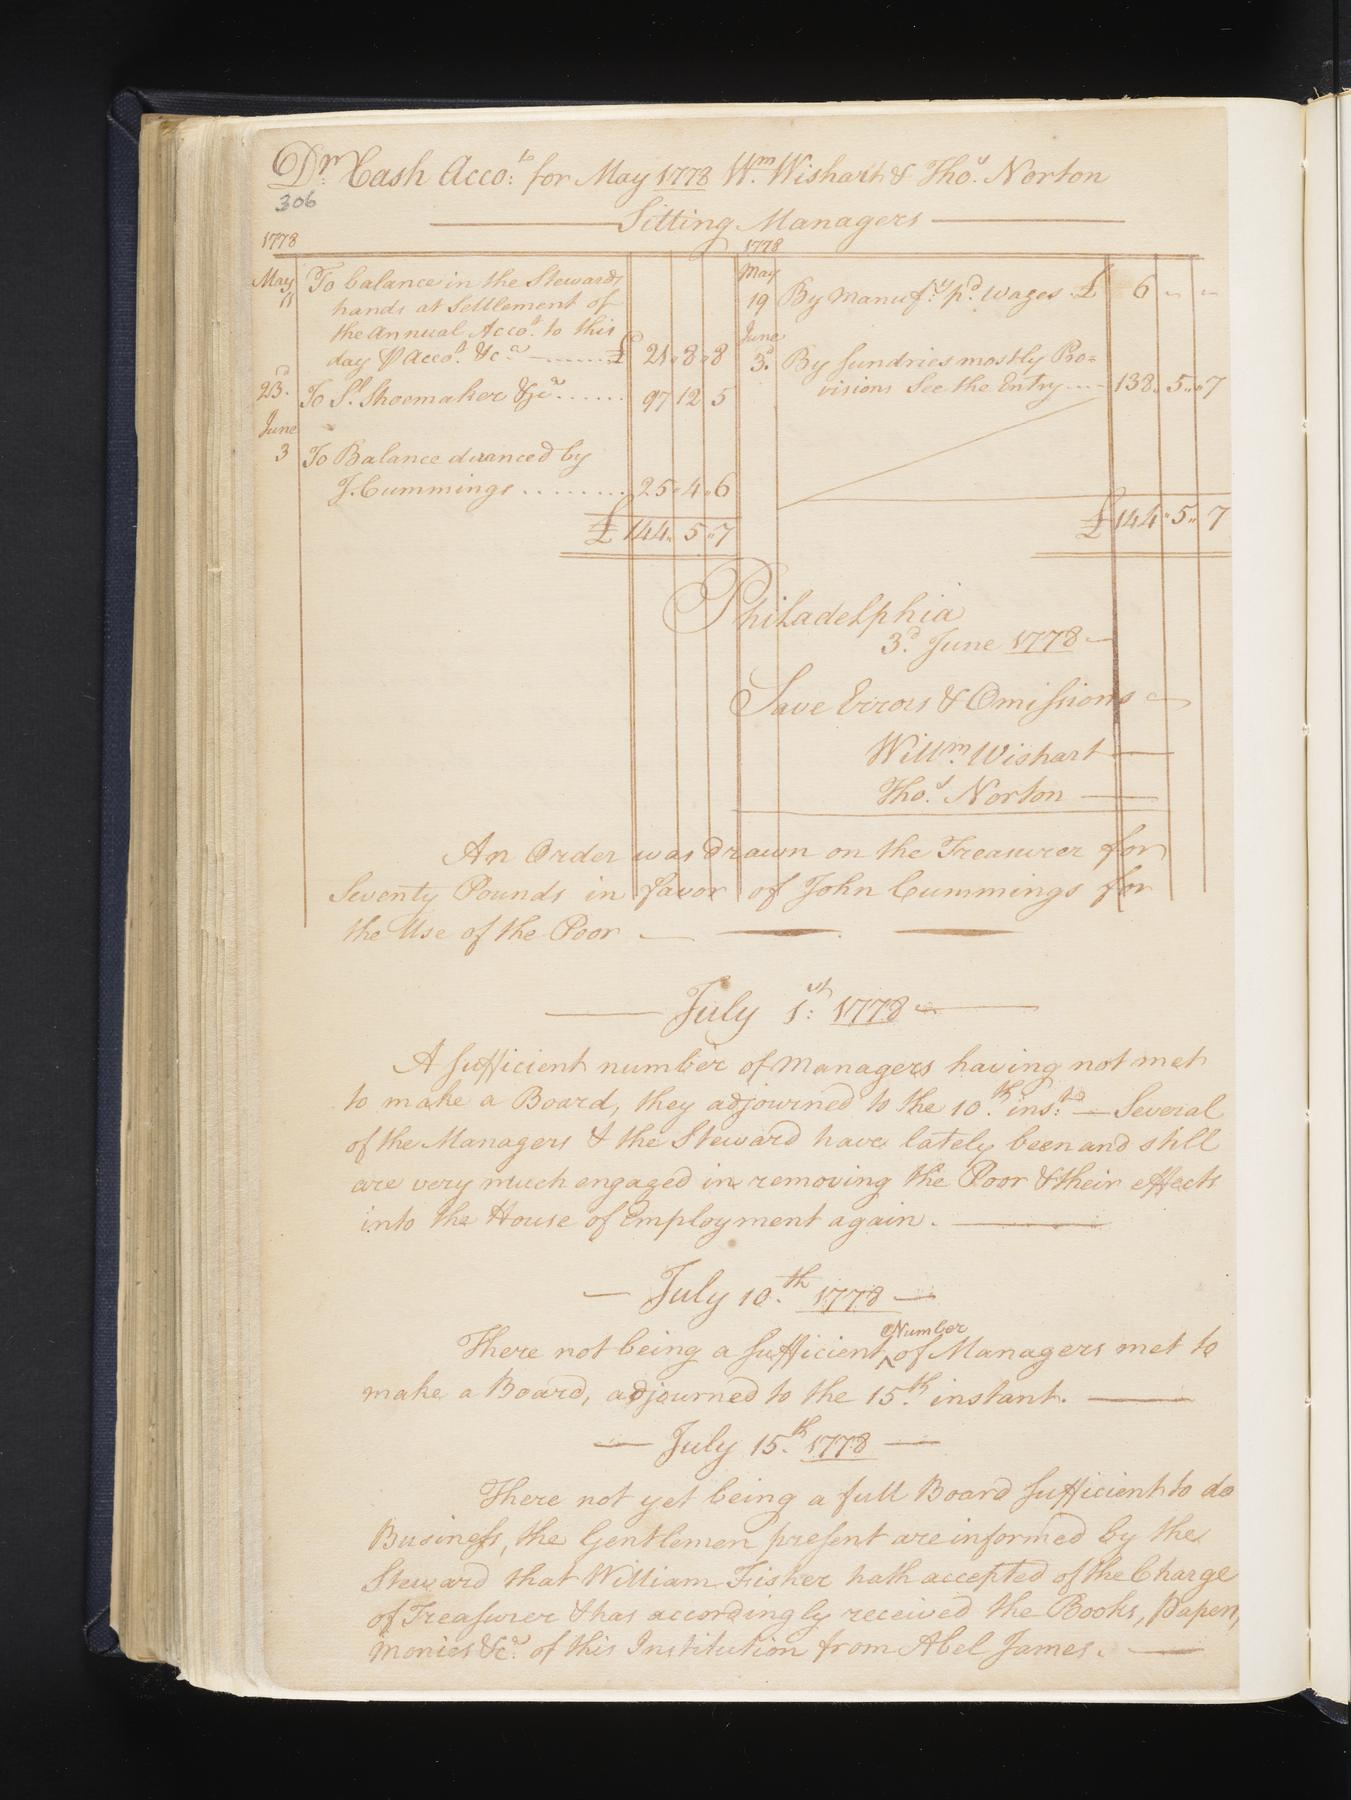 Dr. Cash Acco:ts for May 1778 Wm. Wishart & Thos. Norton
306
Sitting Managers
1778
May 11 To balance in the Stewards
hands at Settlement of
the Annual Accot. to this
day ⅌ Accot. &ca ------- £ 21 " 8 " 8
23.d To St. Shoemaker &ca ...... 97 12 5
June
3 To Balance advanced by
J. Cummings ......... 25 " 4 " 6
£ 144 " 5 " 7
1778
May
19 By Manufy. pd. Wages £ 6 " - " -
June
3d. By Sundries mostly Pro=
visions See the Entry .... 138 " 5 " 7
£ 144 " 5 " 7
Philadelphia
3d. June 1778 —
Save Errors & Omissions
Willm. Wishart —
Thos. Norton —
An Order was drawn on the Treasurer for
Seventy Pounds in favor of John Cummings for
the Use of the Poor —
— July 1:st 1778 —
A sufficient number of Managers having not met
to make a Board, they adjourned to the 10.th ins:t — Several
of the Managers & the Steward have lately been and still
are very much engaged in removing the Poor & their effects
into the House of Employment again. —
— July 10.th 1778 —
Number
There not being a sufficient ^ of Managers met to
make a Board, adjourned to the 15.th instant. —
— July 15.th 1778 —
There not yet being a full Board sufficient to do
Business, the Gentlemen present are informed by the
Steward that William Fisher hath accepted of the Charge
of Treasurer & has accordingly received the Books, Papers,
Monies &ca. of this Institution from Abel James. —